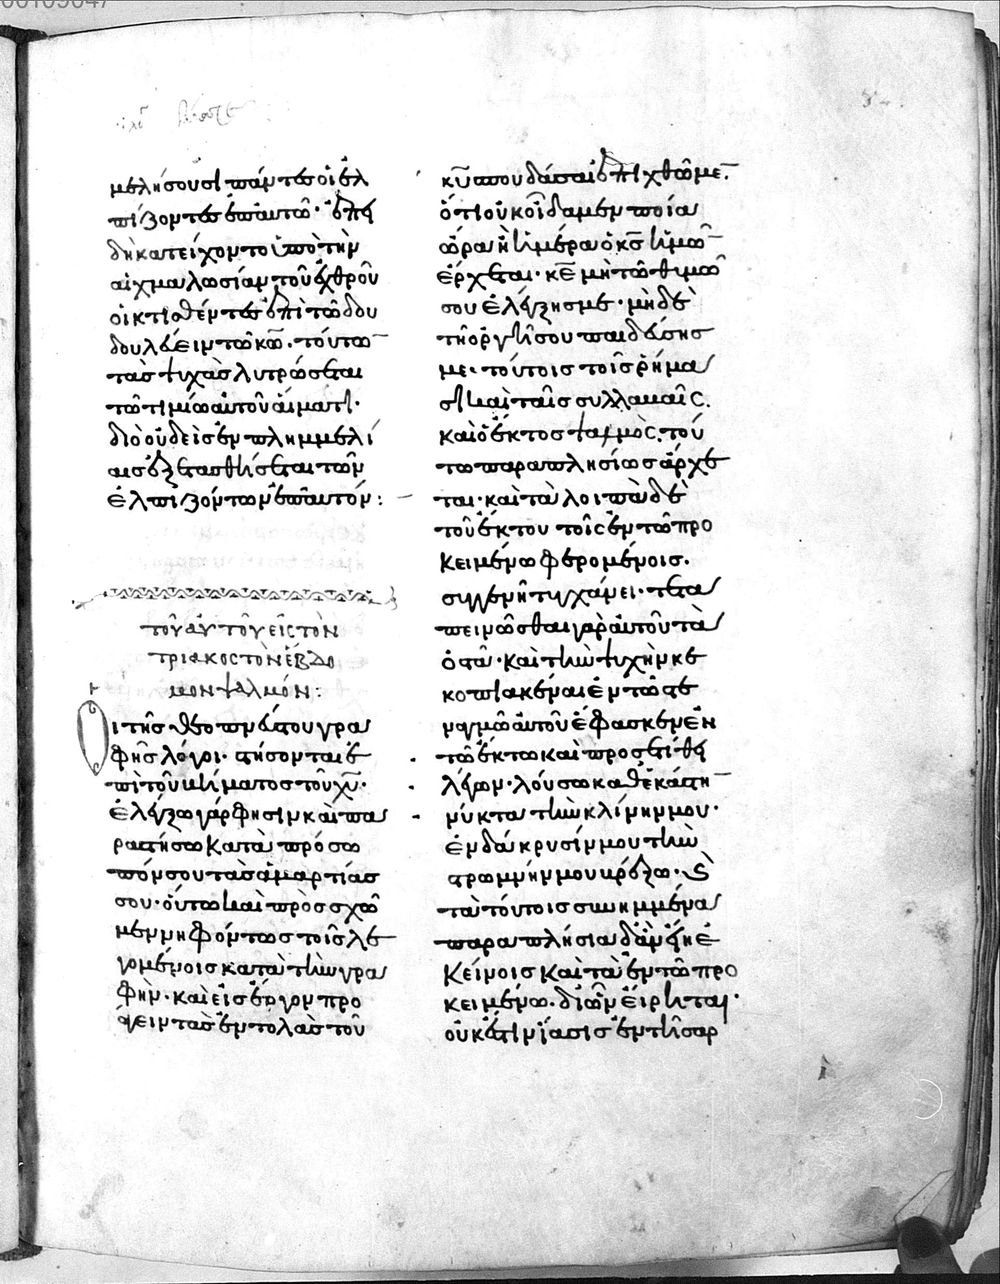 μελήσουσι πάντες οἱ ἐλ
πίζοντες ἐπ' αὐτῷ· ἐπεὶ
δὴ κατείχοντο ὑπὸ τὴν
αἰχμαλωσίαν τοῦ ἐχθροῦ
οἰκτισθέντες ἐπὶ τῷ δου
δουλεύειν τῷ κῷ. τούτω
τὰς ψυχὰς λυτρώσεται
τῷ τιμίῳ αὐτοῦ αἵματι·
διὸ οὐδεὶς ἐν πλημμελί
αις ἐξετασθήσεται τῶν
ἐλπιζόντων ἐπ' αὐτόν:
τοῦ αὐτοῦ εἰς τὸν
τριακοστὸν ἕβδο
μον ψαλμόν:
Οἱ τῆς θεοπνεύστου γρα
φῆς λόγοι· στήσονται ἐ
πὶ τοῦ βήματος τοῦ χυ·
ἐλέγξω γάρ φησιν καὶ πα
ραστήσω κατὰ πρόσω
πόν σου τὰς ἁμαρτίας
σου· οὕτω καὶ πρὸς σχῶ
μεν μὴ φόντως τοῖς λε
γομένοις κατὰ τὴν γρα
φήν· καὶ εἰς ἔργον προ
άγειν τὰς ἐντολὰς τοῦ
κυ σπουδάσαι ἐπιχθῶμεν·
ὅτι οὐκ οἴδαμεν ποία
ὥρα ἢ ἡμέρα ὁ κς ἡμῶν
ἔρχεται· κε μὴ τῷ θυμῷ
σου ἐλέγξῃς με· μηδὲ
τῇ ὀργῇ σου παιδεύσῃς
με· τούτοις τοῖς ῥήμα
σι καὶ ταῖς συλλαβαῖς.
καὶ ὁ ἕκτος ψαλμὸς. τού
τω παραπλησίως ἄρχε
ται· καὶ τὰ λοιπὰ δὲ
τοῦ ἕκτου τοῖς ἐν τῷ προ
κειμένω φερομένοις.
συγγενῆ τυγχάνει· τετα
πεινῶσθαι γὰρ αὐτοῦ τὰ
ὀστᾶ· καὶ τὴν ψυχὴν κε
κοπιακέναι ἐν τῷ στε
ναγμῷ αὐτοῦ ἔφασκεν ἐν
τῷ ἕκτω καὶ προσετίθει
λέγων· λούσω καθ' ἑκάστην
νύκτα τὴν κλίνην μου·
ἐν δάκρυσίν μου τὴν
στρωμνήν μου βρέξω· καὶ
τὰ τούτοις συνημμένα
παραπλήσια δ' ἂν εἴη ἐ
κείνοις καὶ τὰ ἐν τῷ προ
κειμένω. δι' ὧν εἴρηται·
οὐκ ἔστιν ἴασις ἐν τῇ σαρ